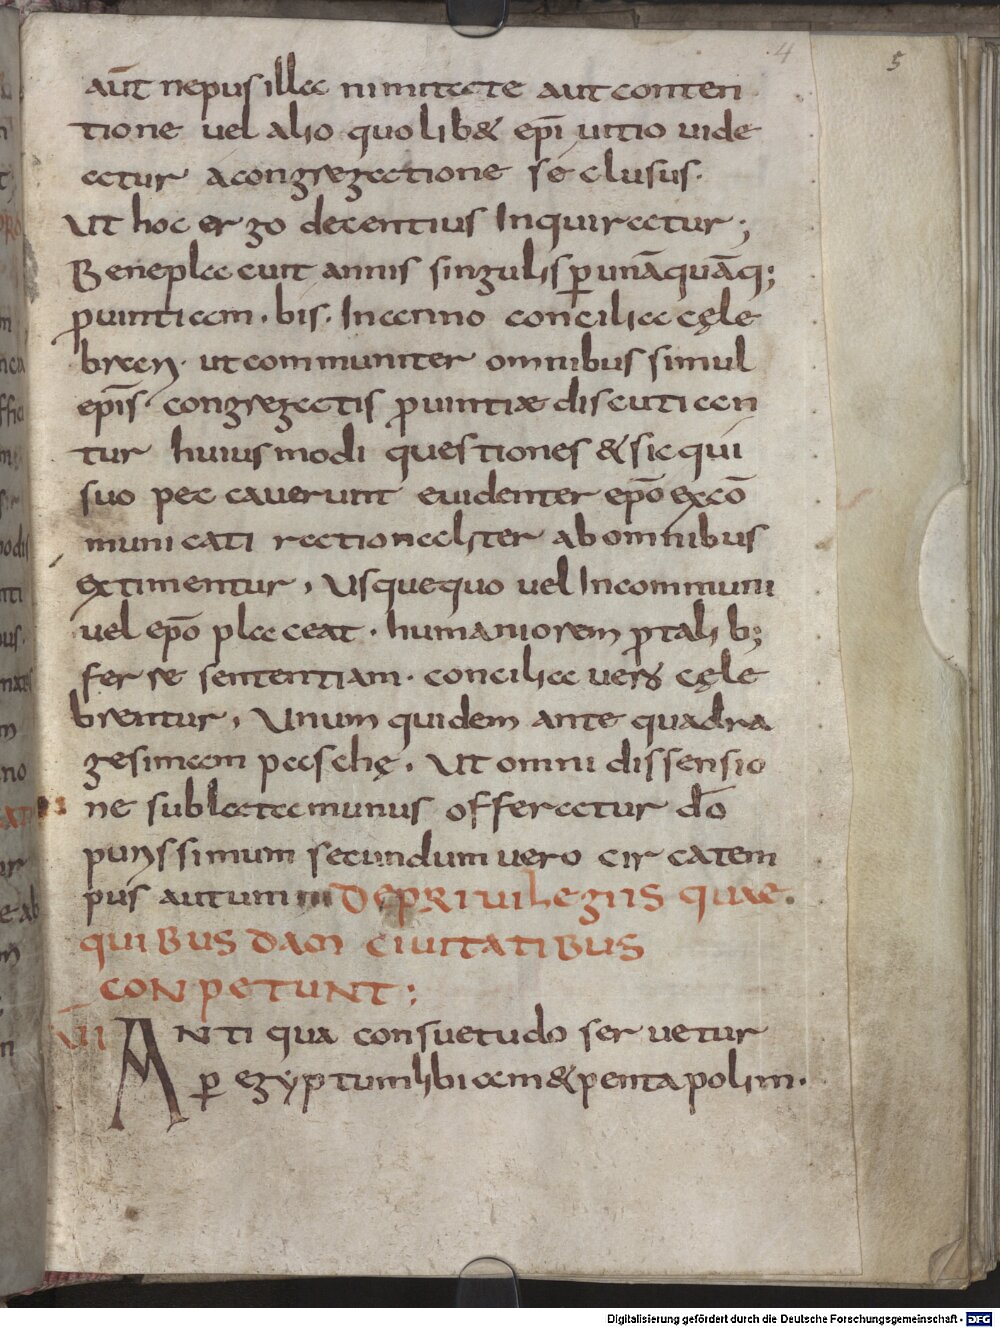 4
5
aūt nepusillaanimitate aut conten
tione uel alio quolib& ep̄i uitio uide
atur acongregatione seclusus.
Ut hoc ergo decentius Inquiratur;
Beneplacuit annis singulis ꝑ unāquāq;
ꝓuintiam. bis. Inanno concilia cęle
brari. ut communiter omnibus simul
ep̄is. congregatis ꝓuintiæ discutian
tur huiusmodi questiones & sic qui
suo peccauerunt euidenter ep̄o excō
municati rationabiliter abomnibus
extimentur, Usquequo uel Incommuni
uel ep̄o placeat. humaniorem ꝓ talib;
ferre sententiam. concilia uero cęle
brentur, Unum quidem ante quadra
gesimam paschę, Ut omni dissensio
ne sublata munus offeratur dō
purissimum secundum uero circa tem
pus autumni DEPRIUILEGIIS QUAE.
QUIBUSDAM CIUITATIBUS
CONPETUNT;
VII ANTIqua consuetudo seruetur
ꝑ egyptum libiam & pentapolim.
Digitalisierung gefördert durch die Deutsche Forschungsgemeinschaft - DFG